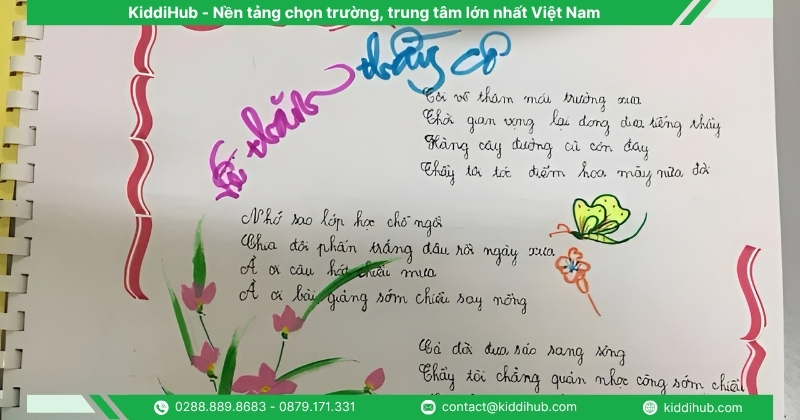 KiddiHub - Nền tảng chọn trường, trung tâm lớn nhất Việt Nam
Về thăm thầy cô
Tôi về thăm mái trường xưa
Thời gian vọng lại đong đưa tiếng thầy
Hàng cây đường cũ còn đây
Thầy tôi tóc điểm hoa mây nửa đời
Nhớ sao lớp học chỗ ngồi
Chia đôi phấn trắng đâu rồi ngày xưa
À ơi câu hát chiều mưa
À ơi bài giảng sớm chiều say nồng
Cả đời đưa sáo sang sông
Thầy tôi chẳng quản nhọc công sớm chiều
0288.889.8683 - 0879.171.331
contact@kiddihub.com
kiddihub.com